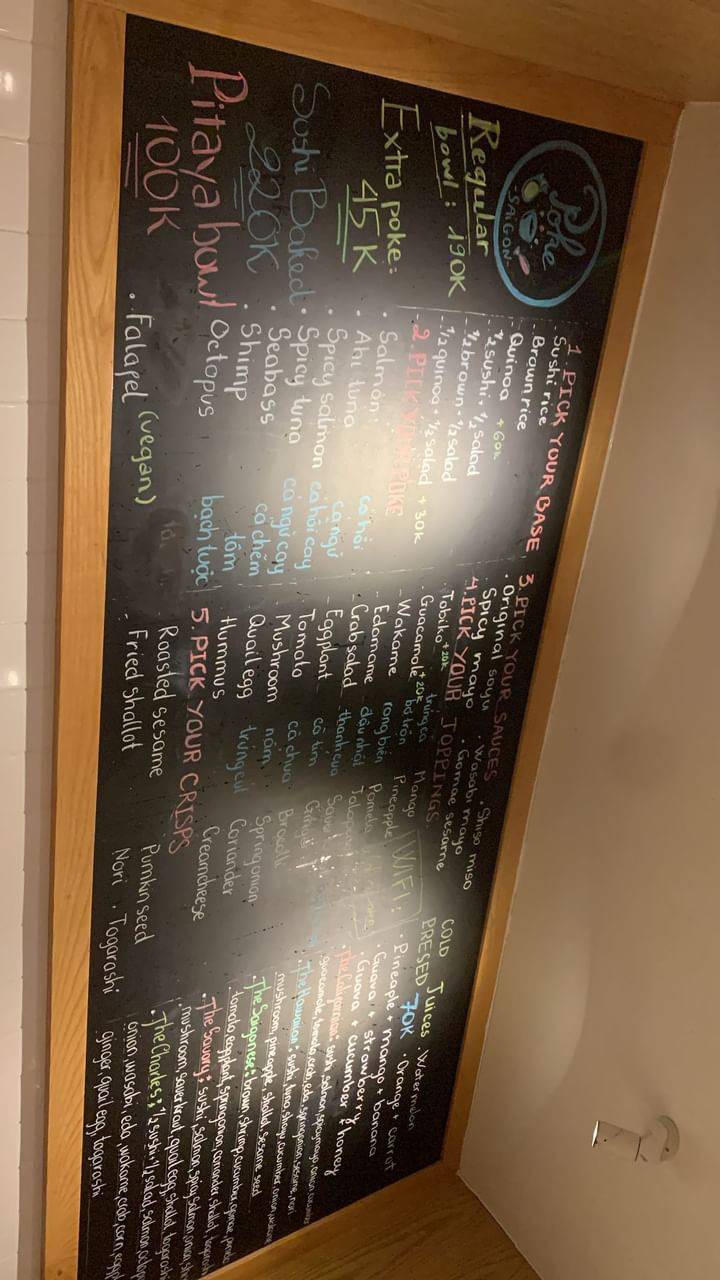 Poke
- SAIGON -
Regular
bowl : 190K
Extra poke:
45K
Sushi Baked
220K
Pitaya bowl
100K
1. PICK YOUR BASE
. Sushi rice
. Brown rice
. Quinoa +60K
. ½ sushi . ½ salad
. ½ brown . ½ salad
. ½ quinoa . ½ salad +30K
2. PICK YOUR POKE
. Salmon cá hồi
. Ahi tuna cá ngừ
. Spicy salmon cá hồi cay
. Spicy tuna cá ngừ cay
. Seabass cá chẽm
. Shimp tôm
. Octopus bạch tuộc
. Falafel (vegan)
3. PICK YOUR SAUCES
. Original soyu . Shiso miso
. Spicy mayo . Wasabi mayo
. Gomae sesame
4. PICK YOUR TOPPINGS
. Tobiko +20K trứng cá Mango
. Guacamole +20K bơ trộn Pineapple
- Wakame rong biển Pomelo
- Edamame đậu nhật
- Crab salad thanh cua
- Eggplant cà tím
Tomato cà chua
Mushroom nấm
Quail egg trứng cút Spring onion
Hummus Coriander
Creamcheese
WIFI:
5. PICK YOUR CRISPS
Roasted sesame Pumkin seed
- Fried shallot Nori . Togarashi
COLD
PRESED Juices
70K
. Watermelon
. Orange + carrot
. Pineaple + mango + banana
. Guava + strawberry
. Guava + cucumber + honey
. The Hawaiian: sushi, tuna, shoyu, cucumber, onion,
mushroom, pineapple, shallot, sesame seed
. The Saigonese: brown, shrimp, cucumber,
tomato, eggplant, springonion, coriander, shallot,
. The Savory: sushi, salmon, spicy salmon, onion,
mushroom, sauerkraut, quail egg, shallot,
. The Charles: ½ sushi . ½ salad, salmon,
onion, wasabi, eda, wakame, crab, corn,
ginger, quail egg, togarashi